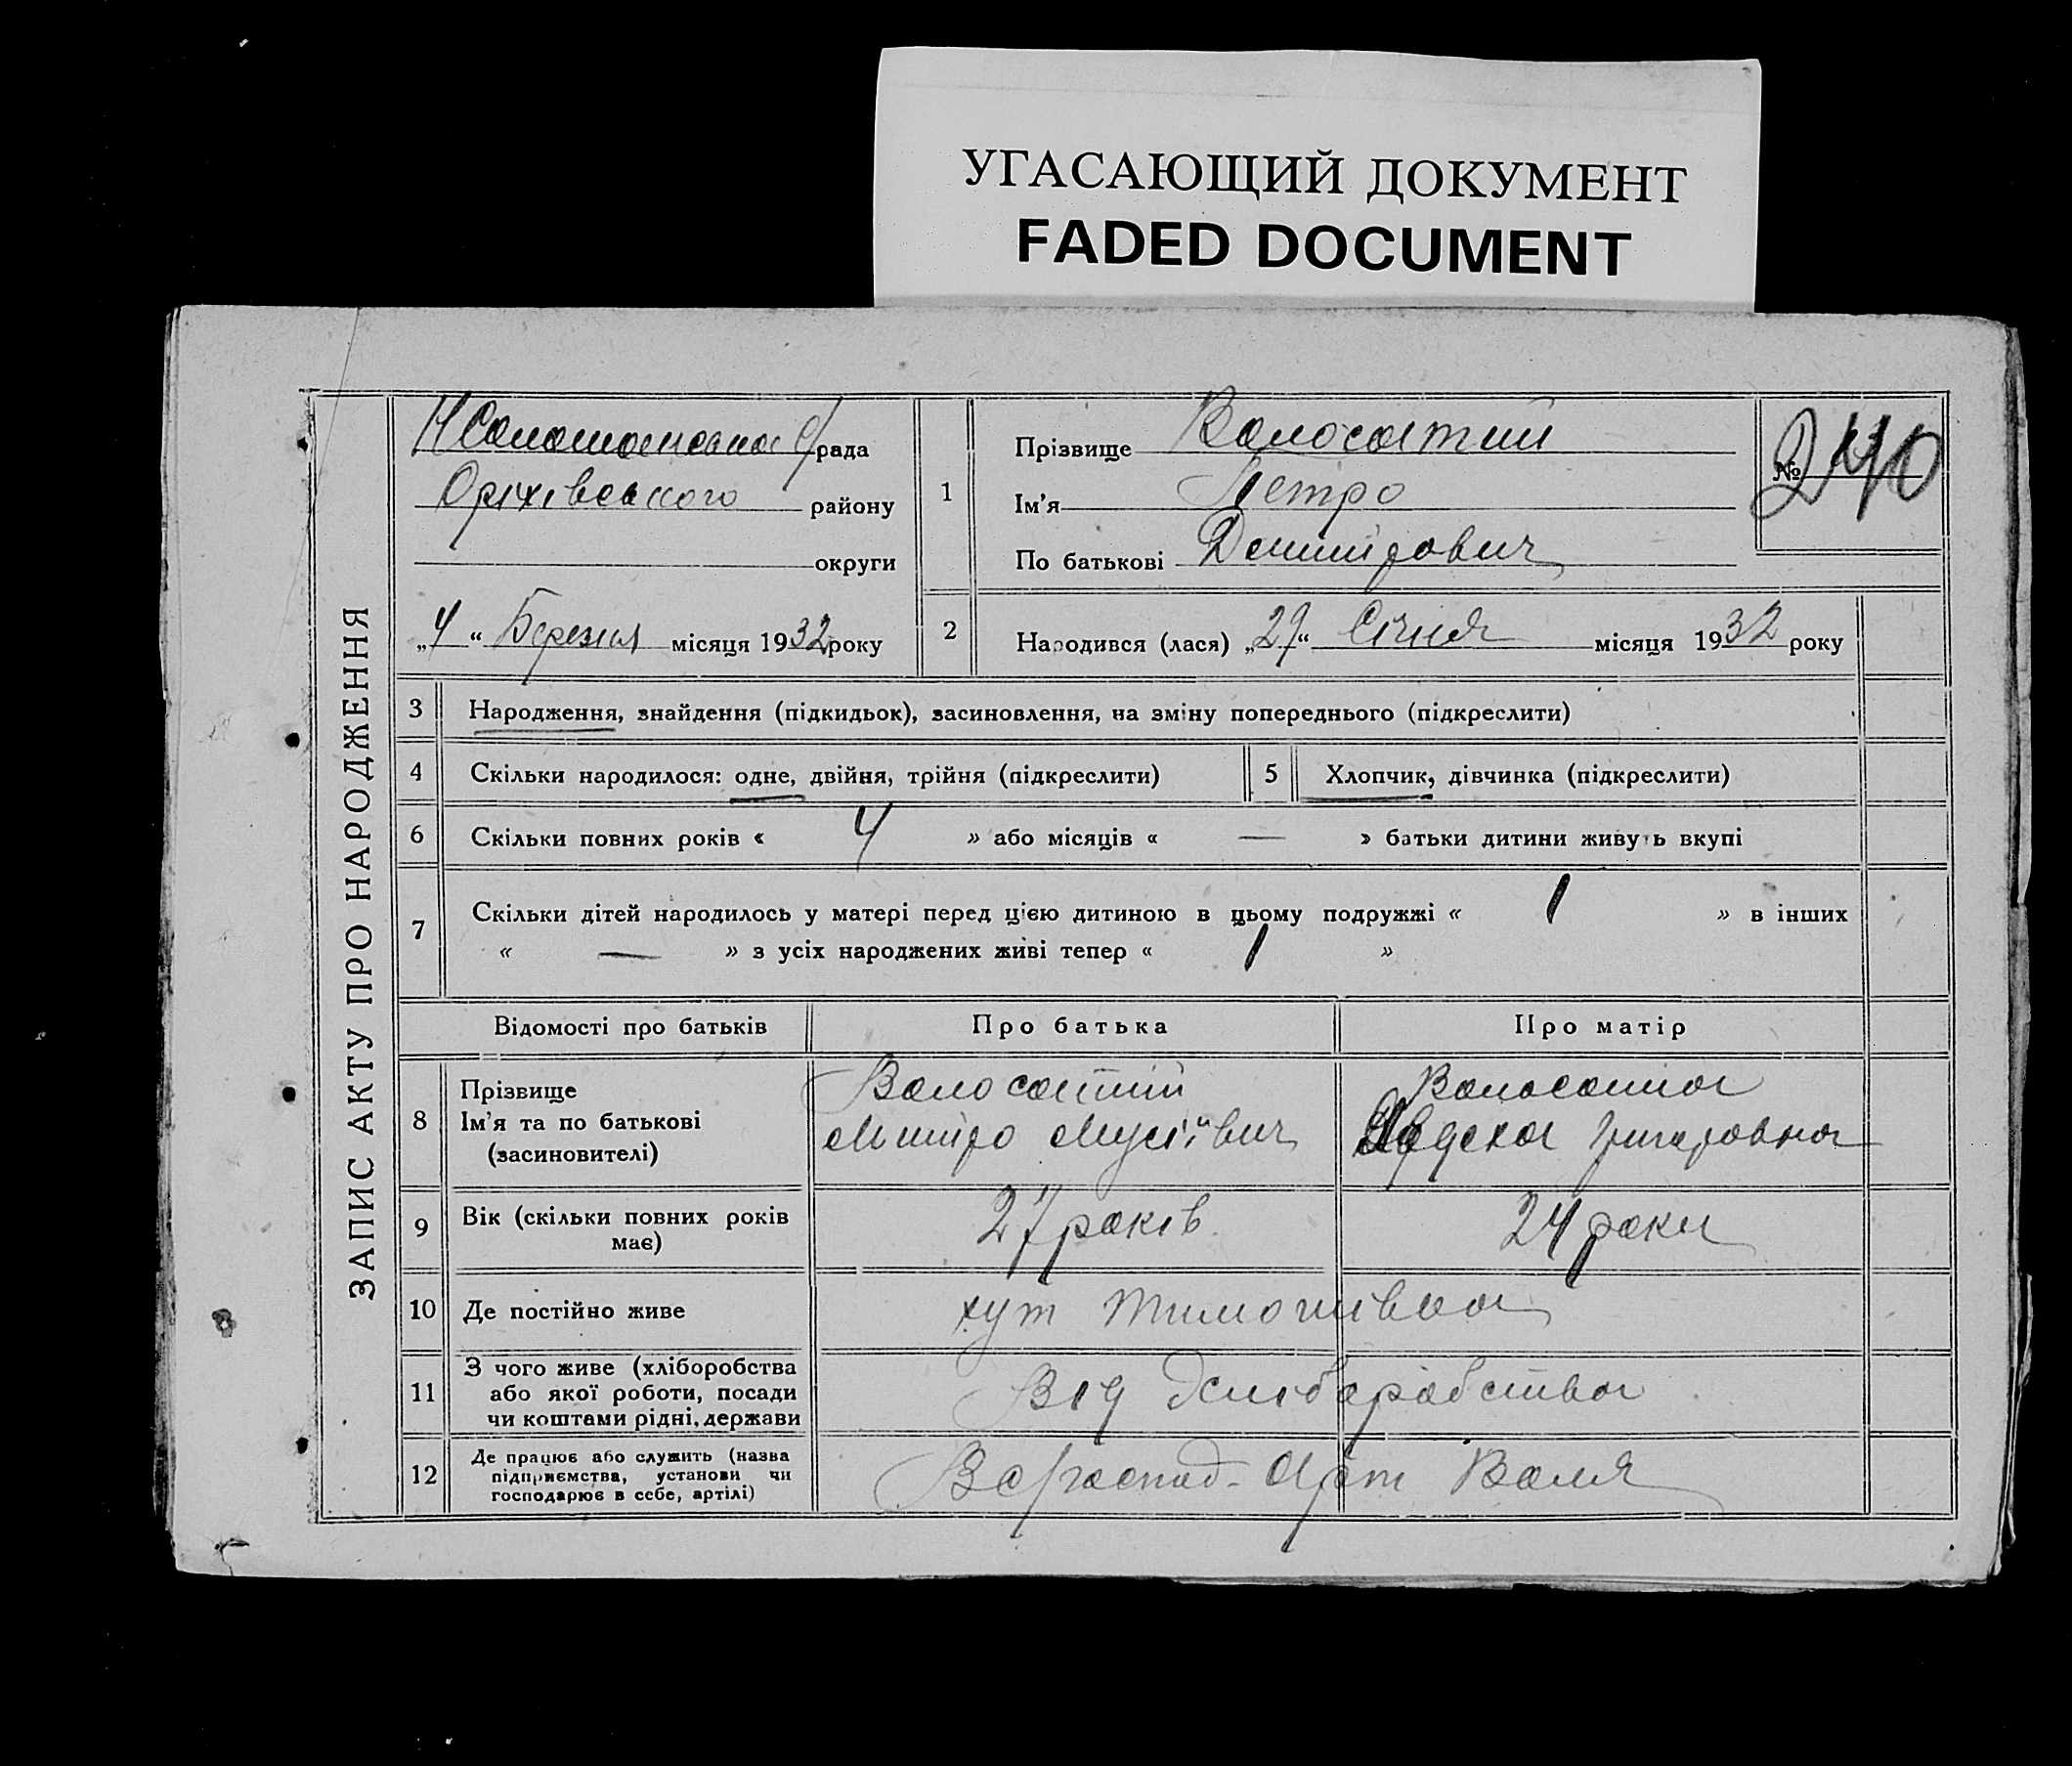 УГАСАЮЩИЙ ДОКУМЕНТ
FADED DOCUMENT
ЗАПИС АКТУ ПРО НАРОДЖЕННЯ
с/рада
Оріхівського району
округи
„4“ Березня місяця 1932 року
1
Прізвище Волосатий
Ім'я Петро
По батькові Дмитрович
№
2 Народився (лася) „29“ Січня місяця 1932 року
3 Народження, знайдення (підкидьок), засиновлення, на зміну попереднього (підкреслити)
4 Скільки народилося: одне, двійня, трійня (підкреслити) 5 Хлопчик, дівчинка (підкреслити)
6 Скільки повних років « 4 » або місяців « — » батьки дитини живуть вкупі
7 Скільки дітей народилось у матері перед цією дитиною в цьому подружжі « 1 » в інших
« — » з усіх народжених живі тепер « 1 »
Відомості про батьків Про батька Про матір
8 Прізвище Волосатий Волосатоа
Ім'я та по батькові Митро Мусієвич Григоровна
(засиновителі)
9 Вік (скільки повних років має) 27 років 24 роки
10 Де постійно живе хут Тимошівка
11 З чого живе (хліборобства або якої роботи, посади чи коштами рідні, держави Від хліборобства
12 Де працює або служить (назва підприємства, установи чи господарює в себе, артілі) В с/господ. Арт Воля